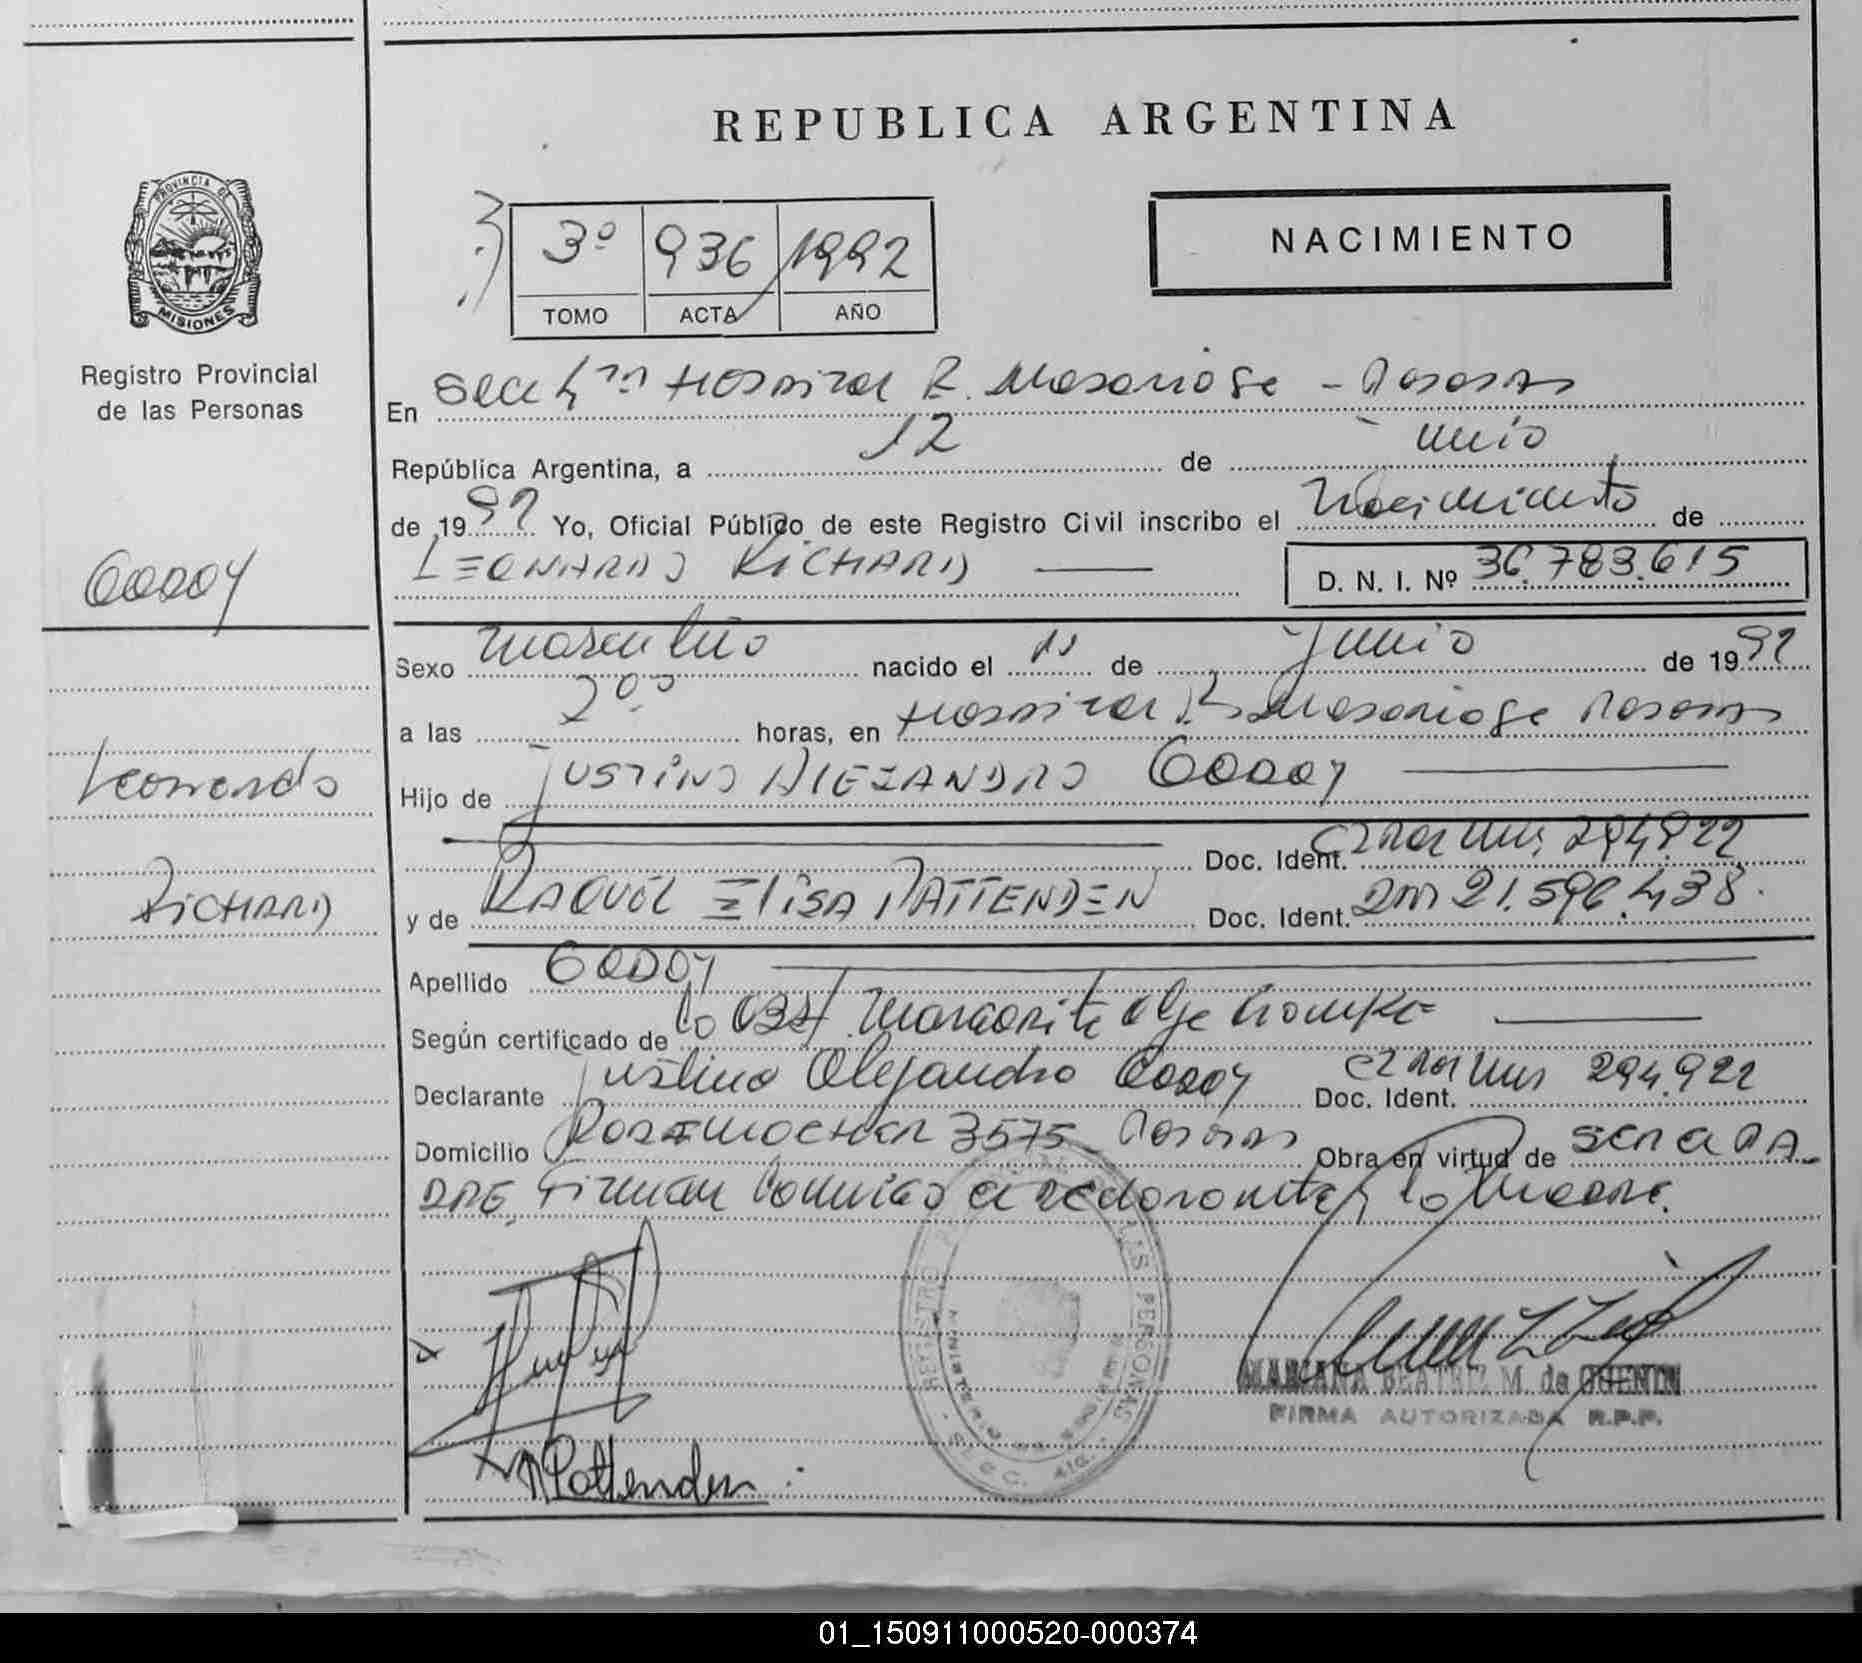 REPUBLICA ARGENTINA
PROVINCIA DE
MISIONES
Registro Provincial
de las Personas
3º 936 1992
TOMO ACTA AÑO
NACIMIENTO
En Secc 4ta Hospital R. Madariaga - Posadas
República Argentina, a 12 de Junio
de 1992 Yo, Oficial Público de este Registro Civil inscribo el Nacimiento de
LEONARDO RICHARD
D. N. I. Nº 36.783.615
GODOY
Leonardo
RICHARD
Sexo Masculino nacido el 11 de Junio de 1992
a las 2º horas, en Hospital R. Madariaga Posadas
Hijo de JUSTINO ALEJANDRO GODOY
Doc. Ident. 294.922
y de RAQUEL ELISA PATTENDEN Doc. Ident. DNI 21.596.438.
Apellido GODOY
Según certificado de la Obst. Margarita Olga
Declarante Justino Alejandro GODOY Doc. Ident. 294.922
Domicilio 3575 Posadas Obra en virtud de ser el PA-
DRE, Firman conmigo el declarante y la Madre.
Pattenden
REGISTRO PROVINCIAL DE LAS PERSONAS
MINISTERIO DE GOBIERNO
SECC. 4ta.
MARIANA BEATRIZ M. de GUENIN
FIRMA AUTORIZADA R.P.P.
01_150911000520-000374